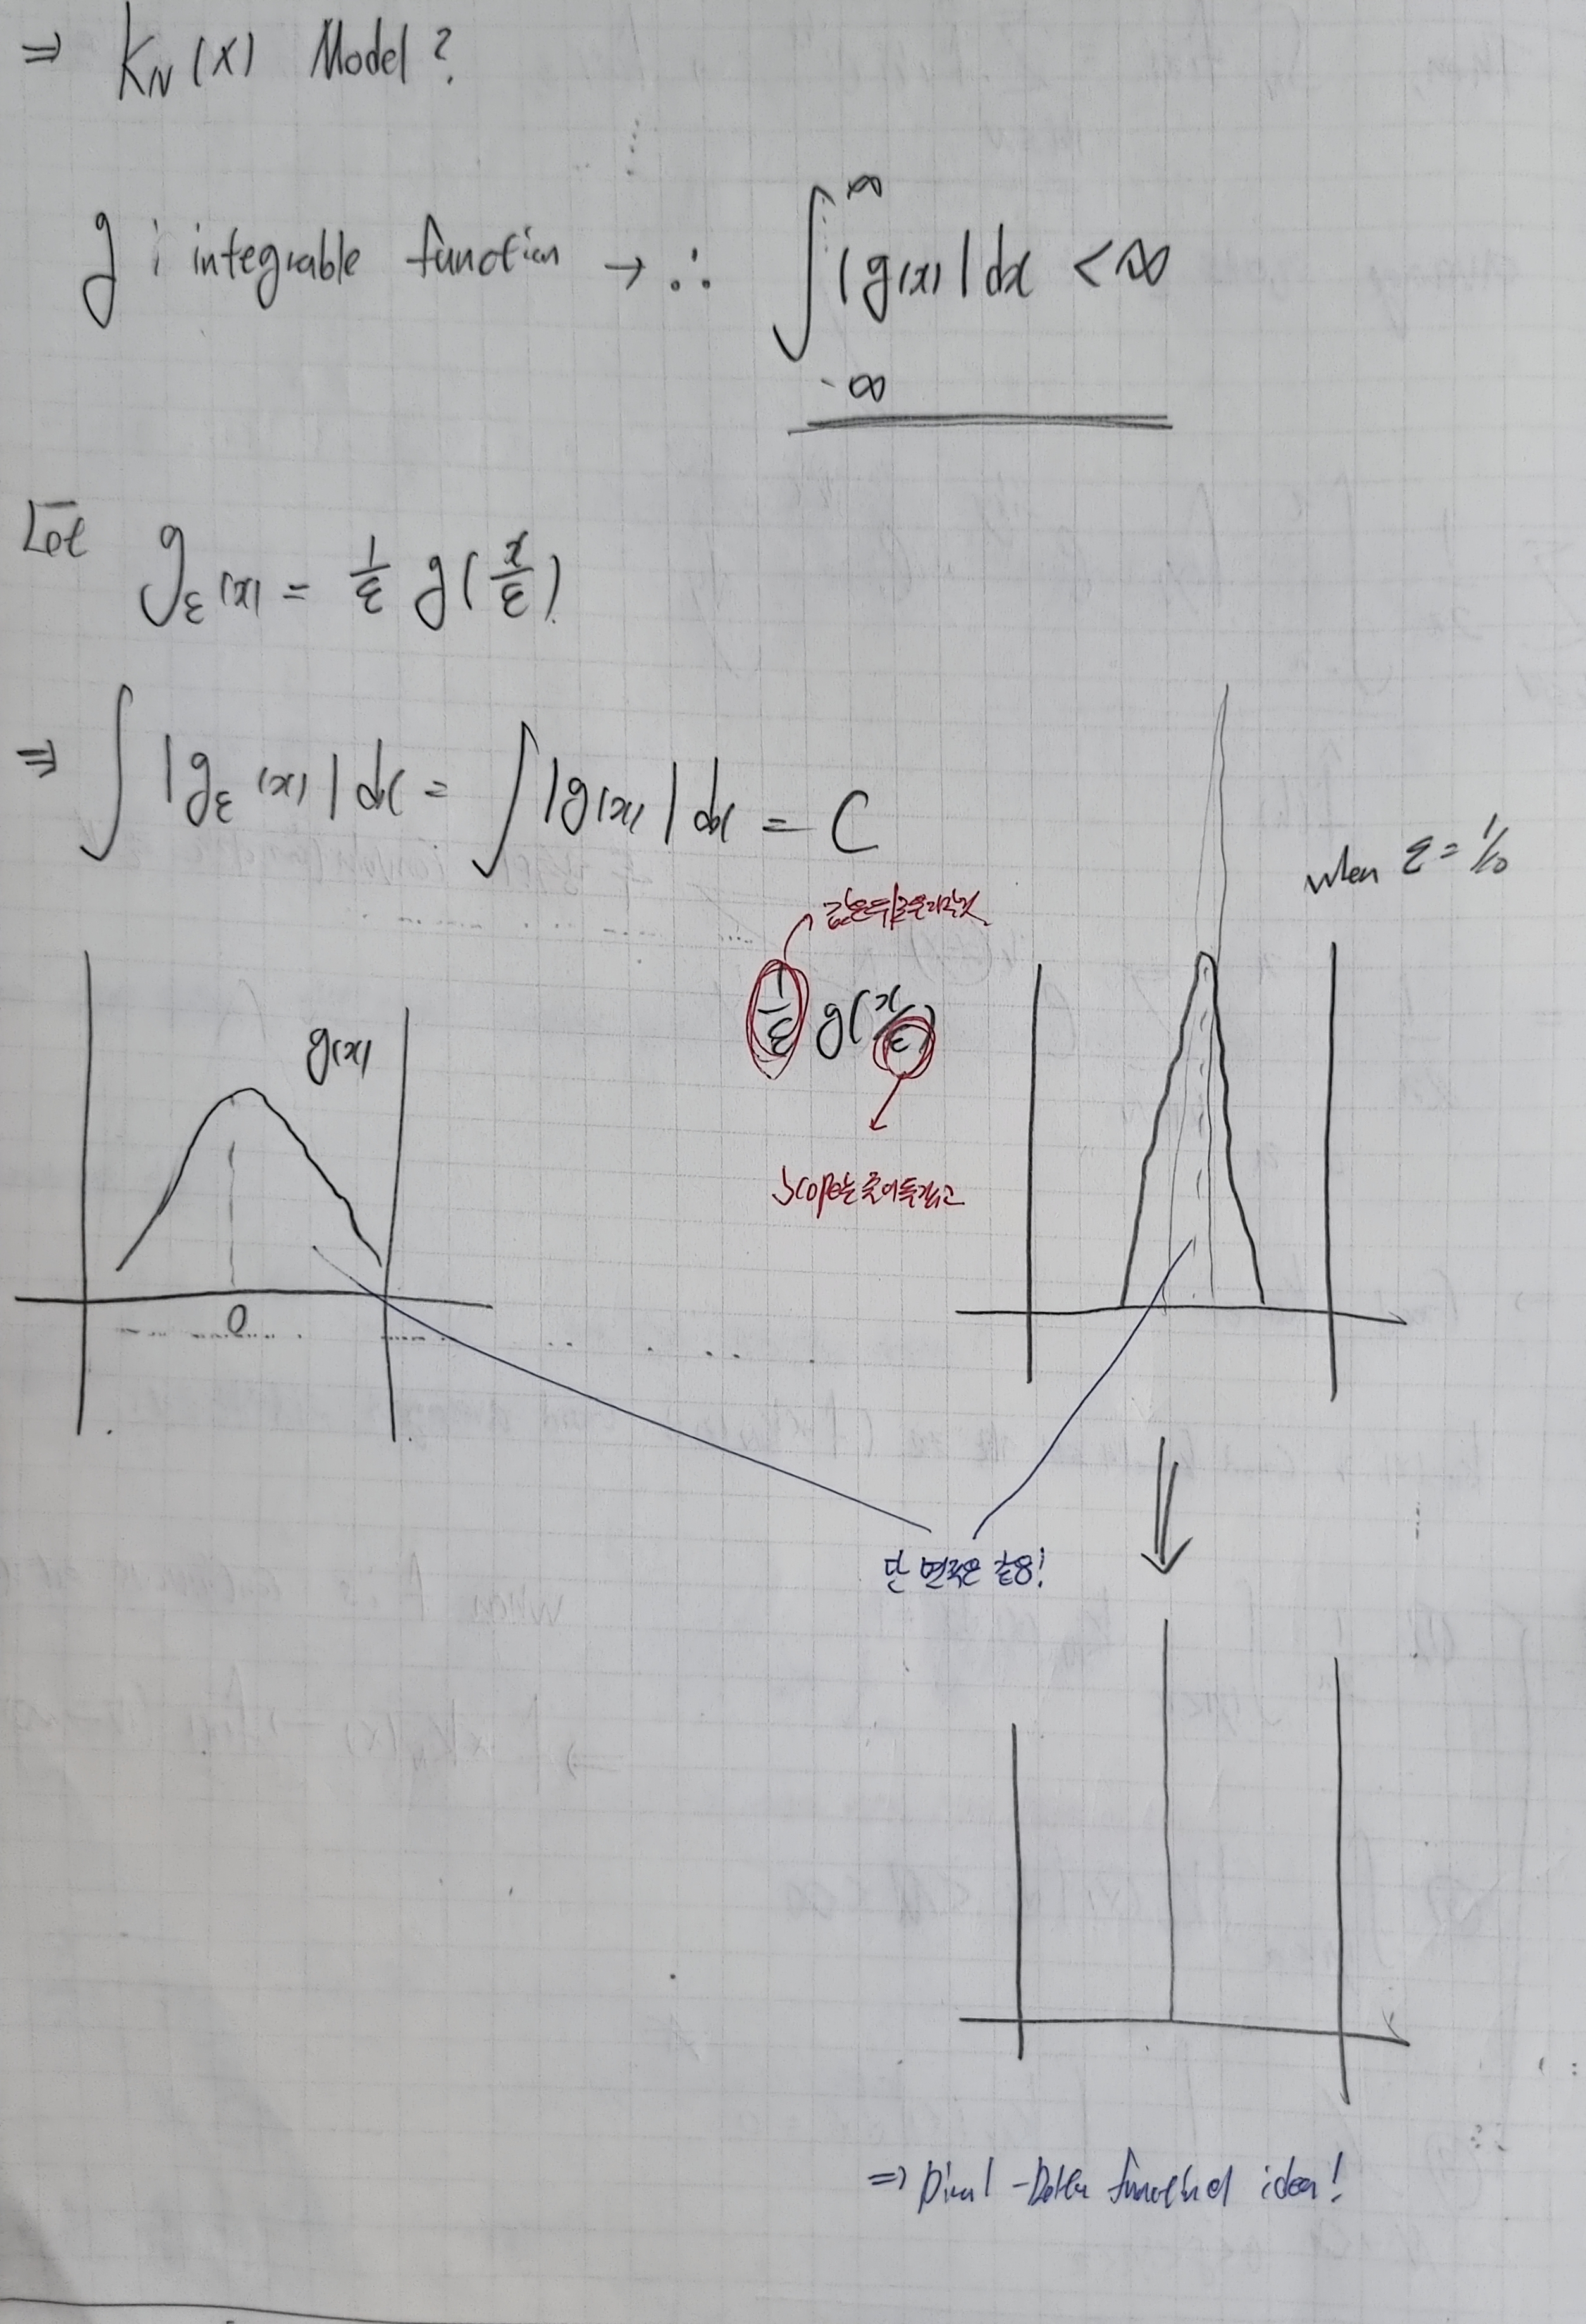 ⇒ K_N(x) Model?
g : integrable function → ∴ ∫_{-∞}^{∞} |g(x)| dx < ∞
Let g_ε(x) = 1/ε g(x/ε)
⇒ ∫ |g_ε(x)| dx = ∫ |g(x)| dx = C
when ε = 1/10
1/ε g(x/ε)
g(x)
scope는 줄어들 것이고
0
단 면적은 같음!
⇒ Dirac-Delta function idea!